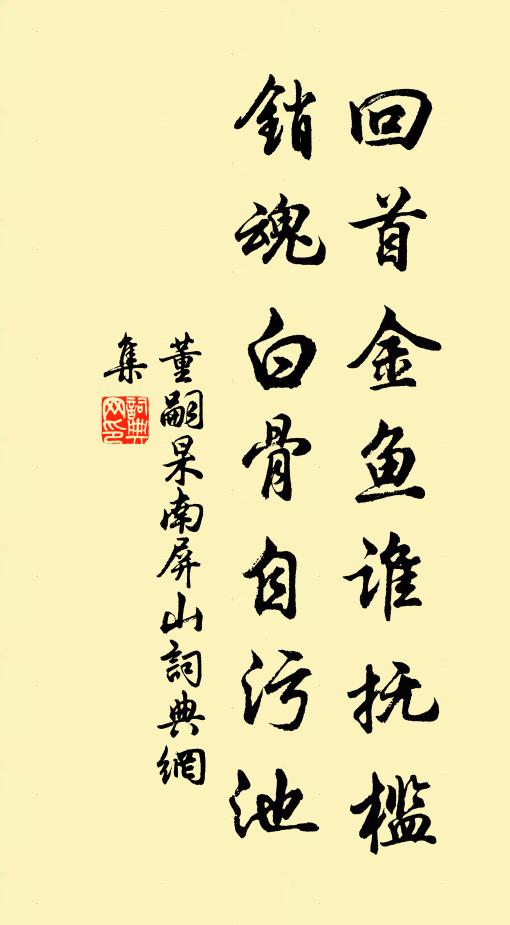 回首金鱼谁抚槛
銷魂白骨自污池
董嗣杲南屏山詞典網
集
詞典网印